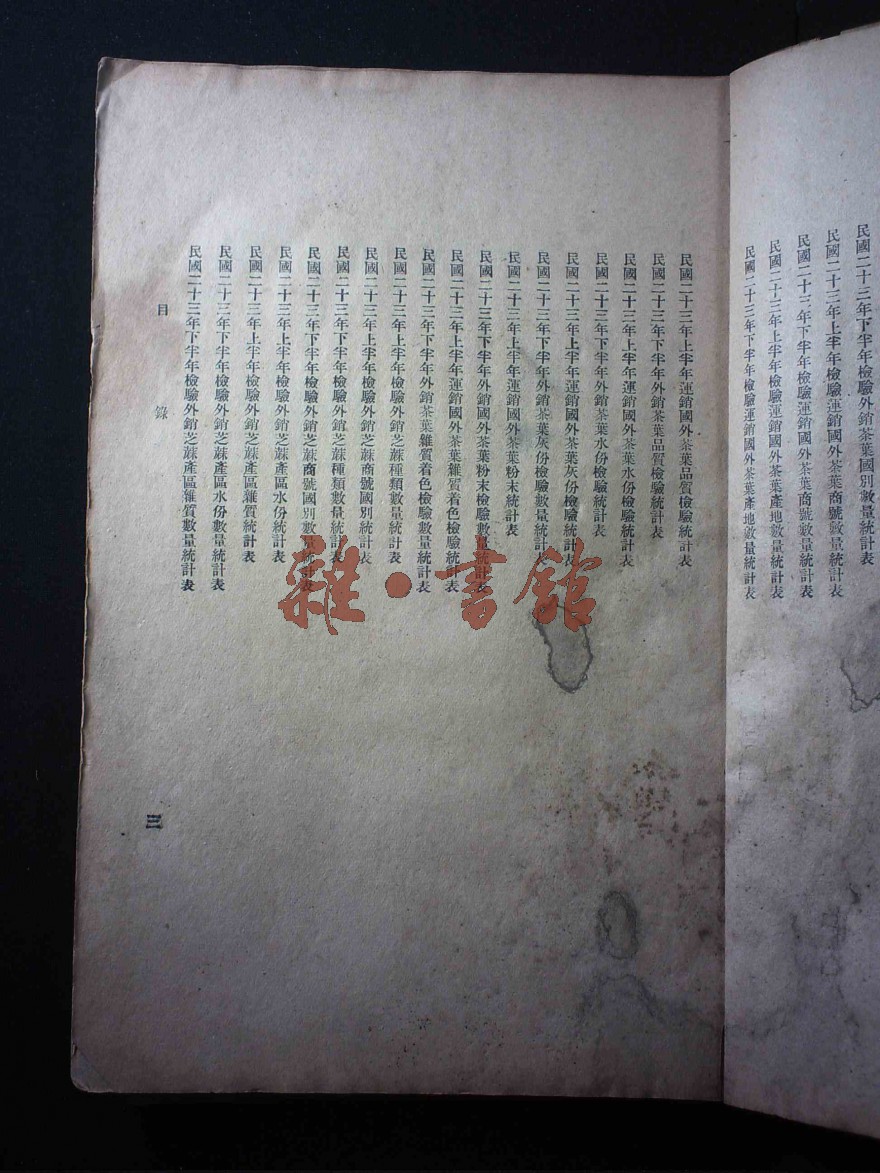 民國二十三年下半年檢驗外銷茶葉國別數量統計表
民國二十三年上半年檢驗運銷國外茶葉商號數量統計表
民國二十三年下半年檢驗運銷國外茶葉商號數量統計表
民國二十三年上半年檢驗運銷國外茶葉產地數量統計表
民國二十三年下半年檢驗運銷國外茶葉產地數量統計表
民國二十三年上半年運銷國外茶葉品質檢驗統計表
民國二十三年下半年外銷茶葉品質檢驗統計表
民國二十三年上半年運銷國外茶葉水份檢驗統計表
民國二十三年下半年外銷茶葉水份檢驗統計表
民國二十三年上半年運銷國外茶葉灰份檢驗統計表
民國二十三年下半年外銷茶葉灰份檢驗數量統計表
民國二十三年上半年運銷國外茶葉粉末統計表
民國二十三年下半年外銷國外茶葉粉末檢驗數量統計表
民國二十三年上半年運銷國外茶葉雜質着色檢驗統計表
民國二十三年下半年外銷茶葉雜質着色檢驗數量統計表
民國二十三年上半年檢驗外銷芝蔴種類數量統計表
民國二十三年上半年檢驗外銷芝蔴商號國別統計表
民國二十三年下半年檢驗外銷芝蔴種類數量統計表
民國二十三年下半年檢驗外銷芝蔴商號國別數量統計表
民國二十三年上半年檢驗外銷芝蔴產區水份統計表
民國二十三年上半年檢驗外銷芝蔴產區雜質統計表
民國二十三年下半年檢驗外銷芝蔴產區水份數量統計表
民國二十三年下半年檢驗外銷芝蔴產區雜質數量統計表
目錄
三
雜·書館